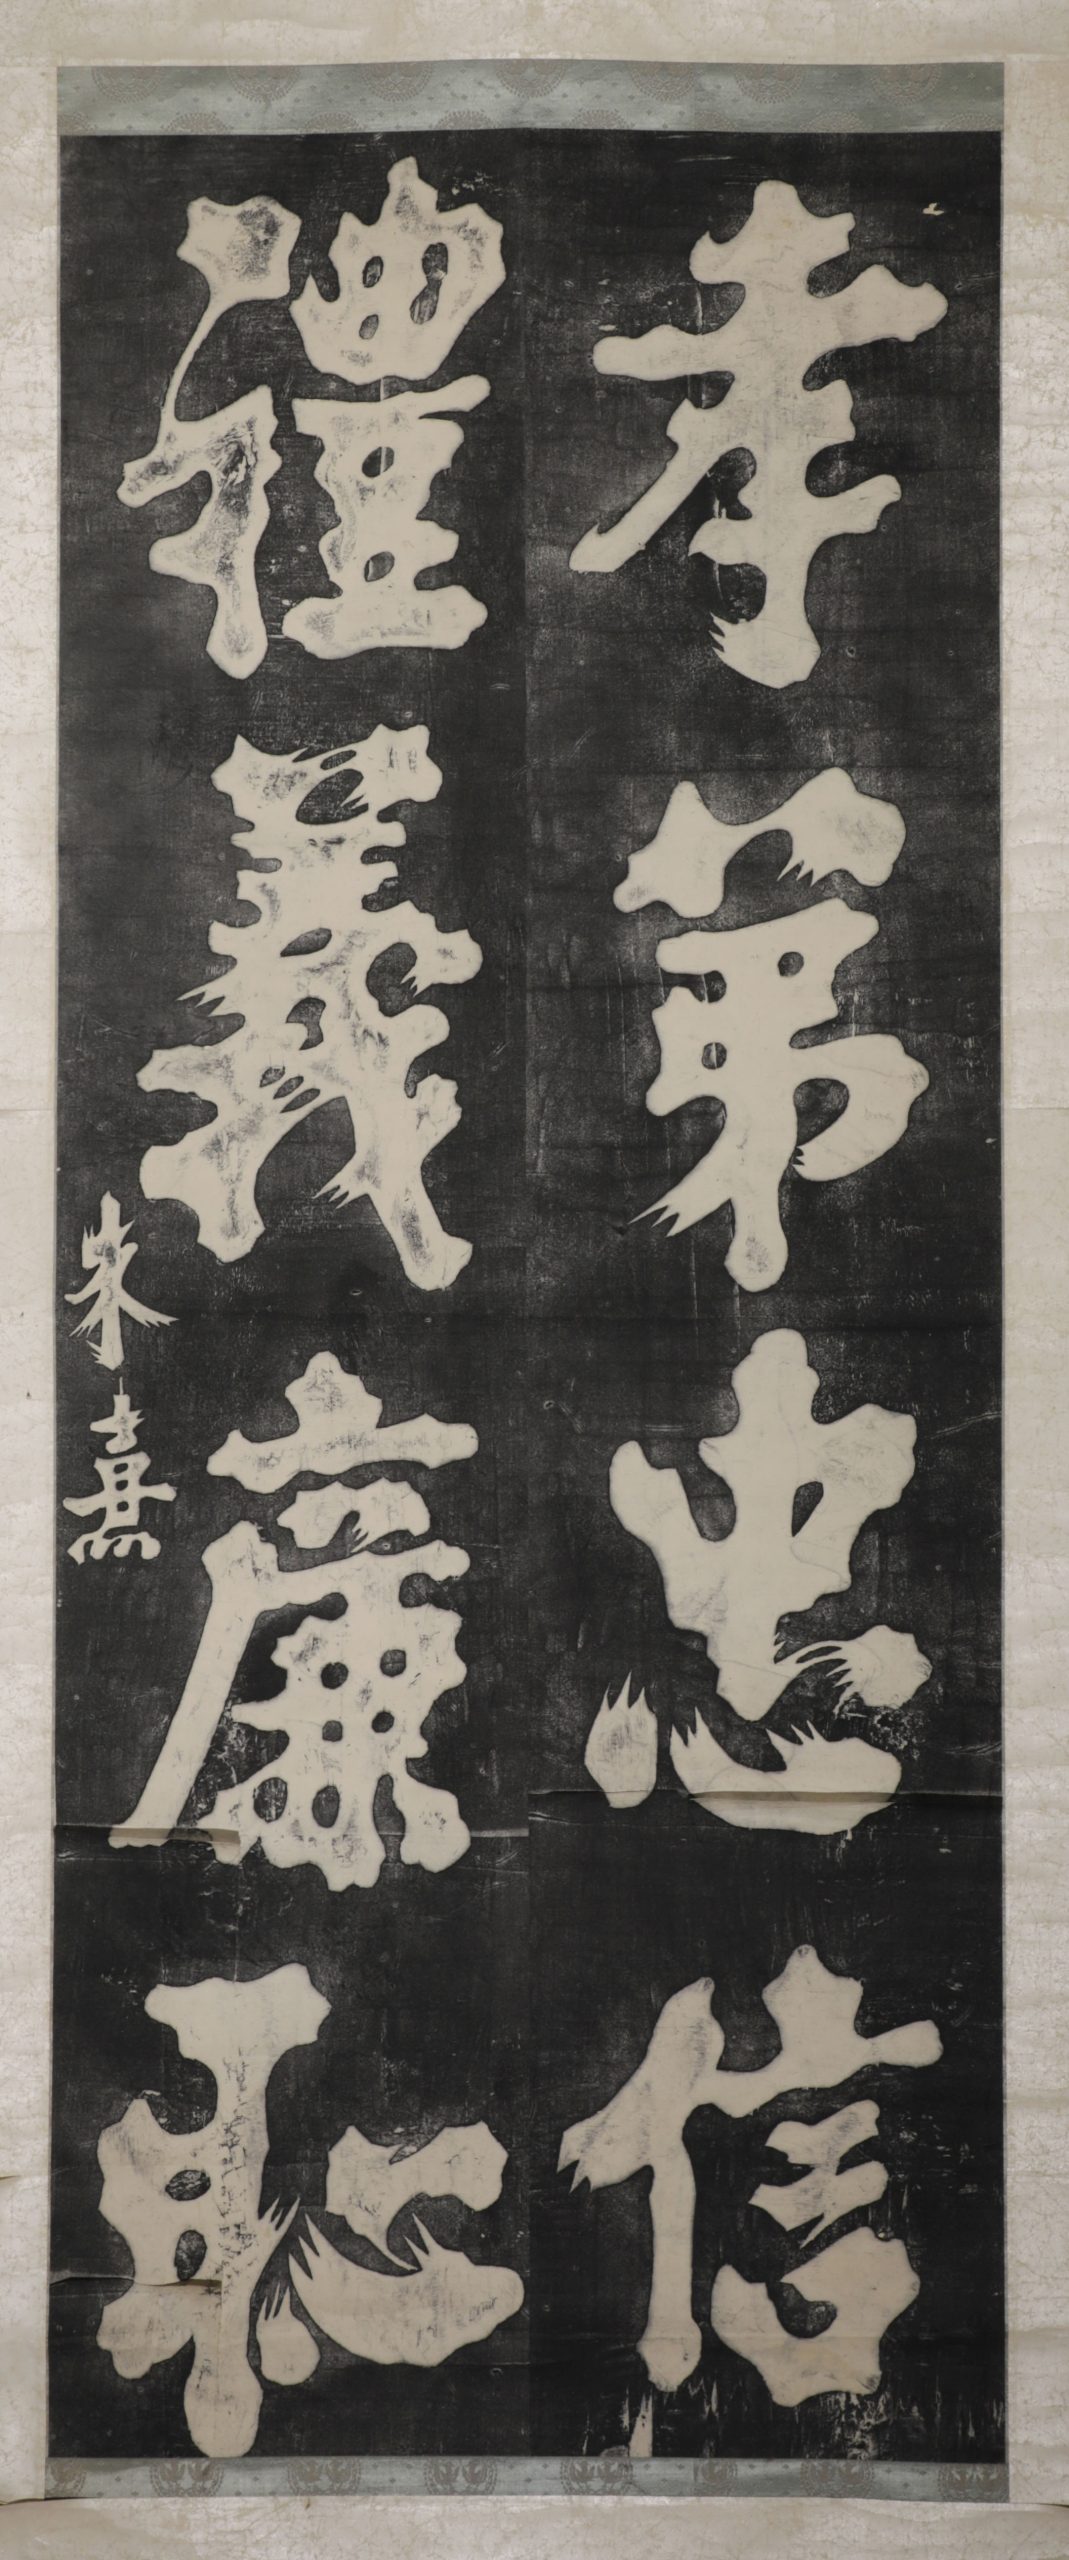 孝弟忠信
禮義廉恥
朱熹